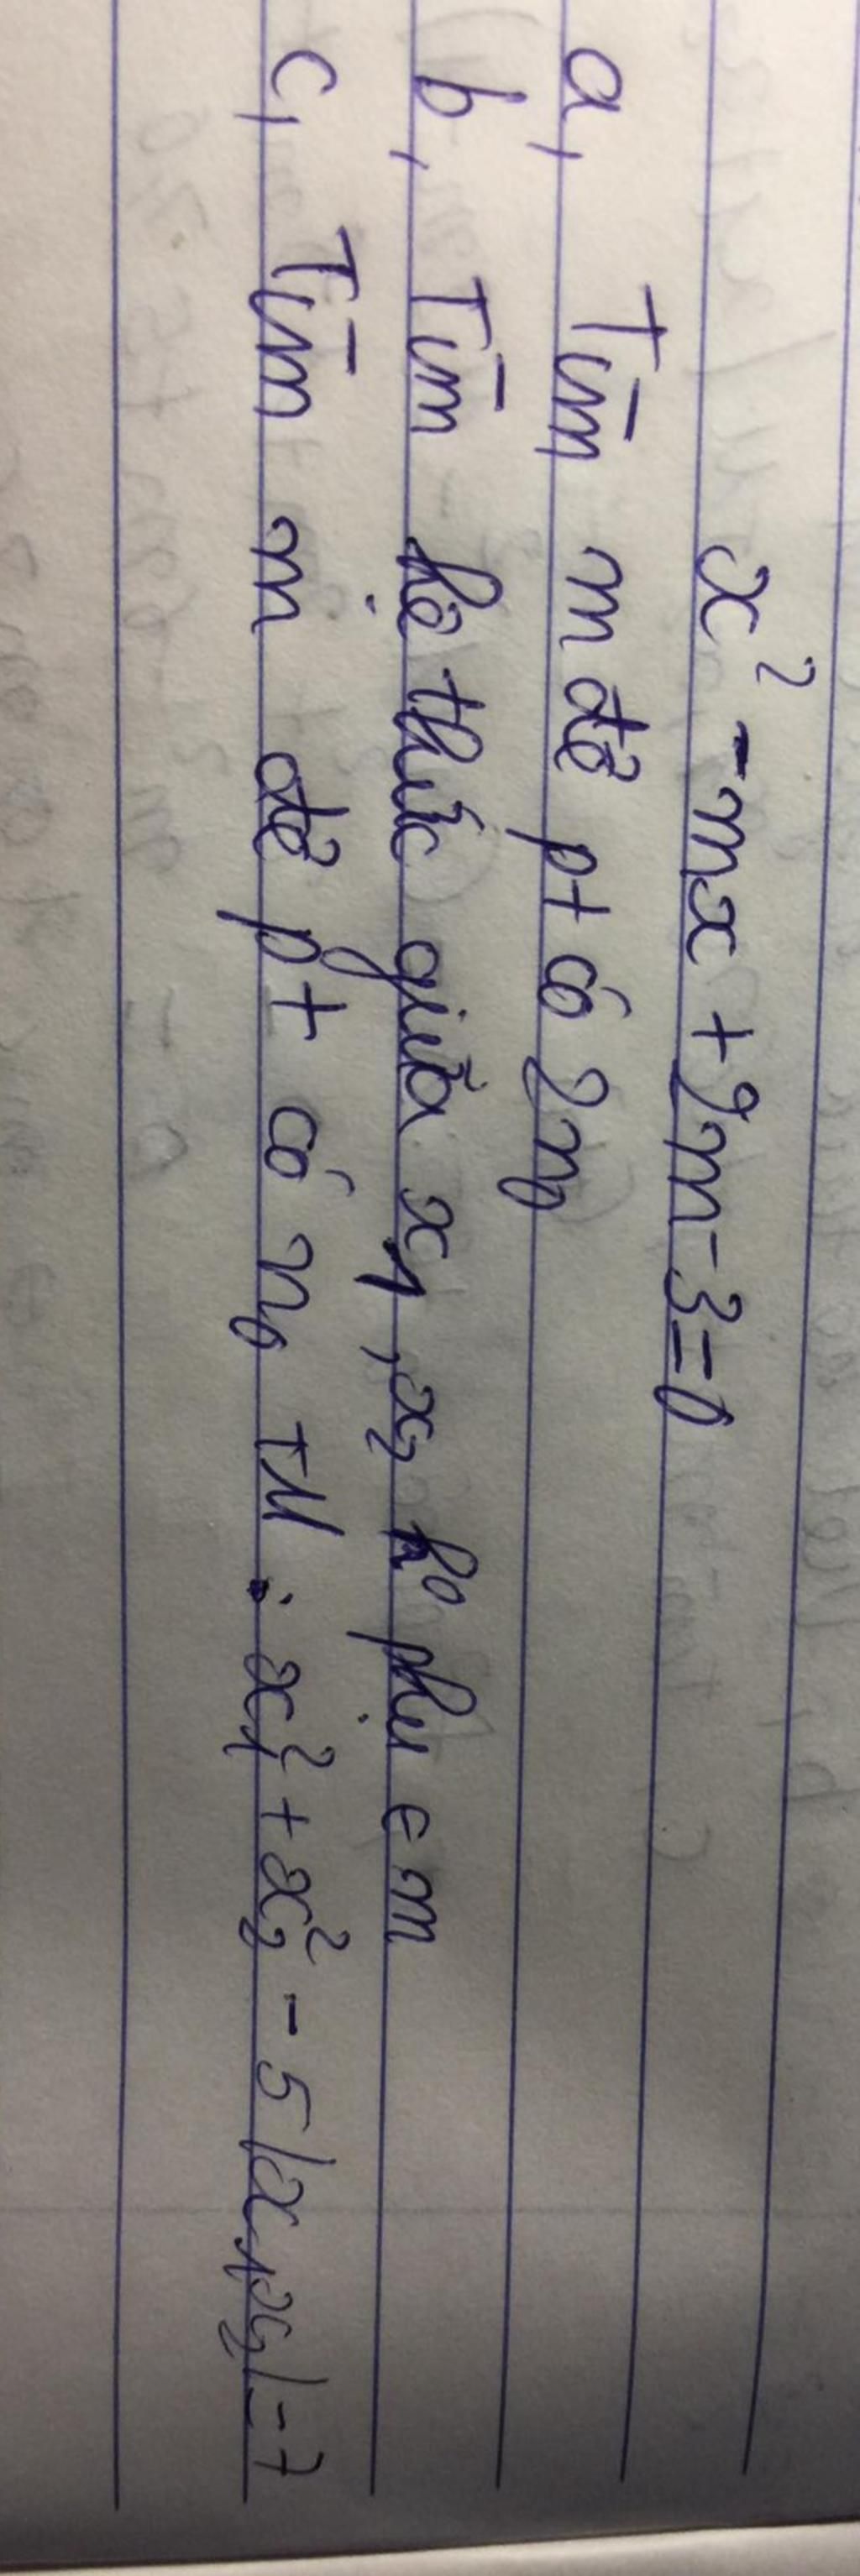 x² - mx + 2m - 3 = 0
a, Tìm m để pt có 2 no
b, Tìm hệ thức giữa x₁, x₂ k⁰ phụ ∈ m
c, Tìm m để pt có no TM : x₁² + x₂² - 5|x₁x₂| = 7